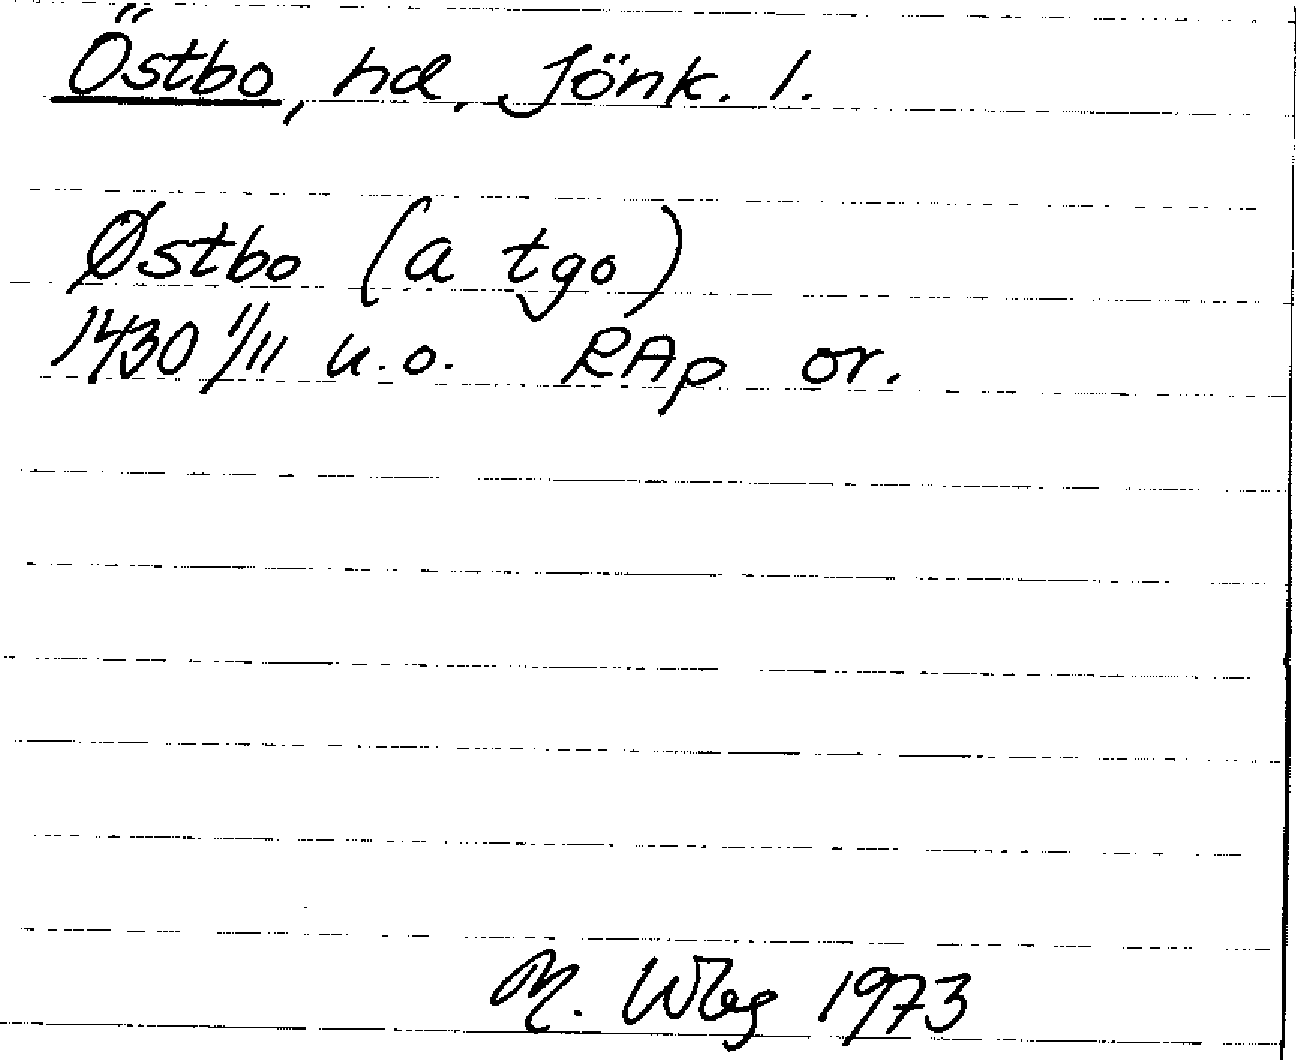 Östbo, hd, Jönk. l.
Østbo (a tgo)
1430 1/11 u.o. RAp or.
M. Wbg 1973